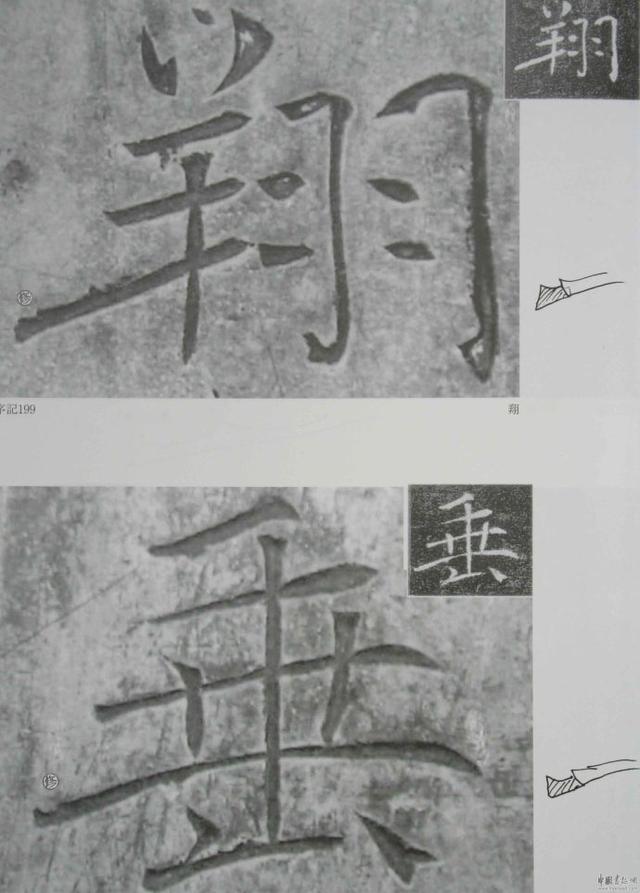 翔
翔
字記199 翔
垂
垂
中國書法網